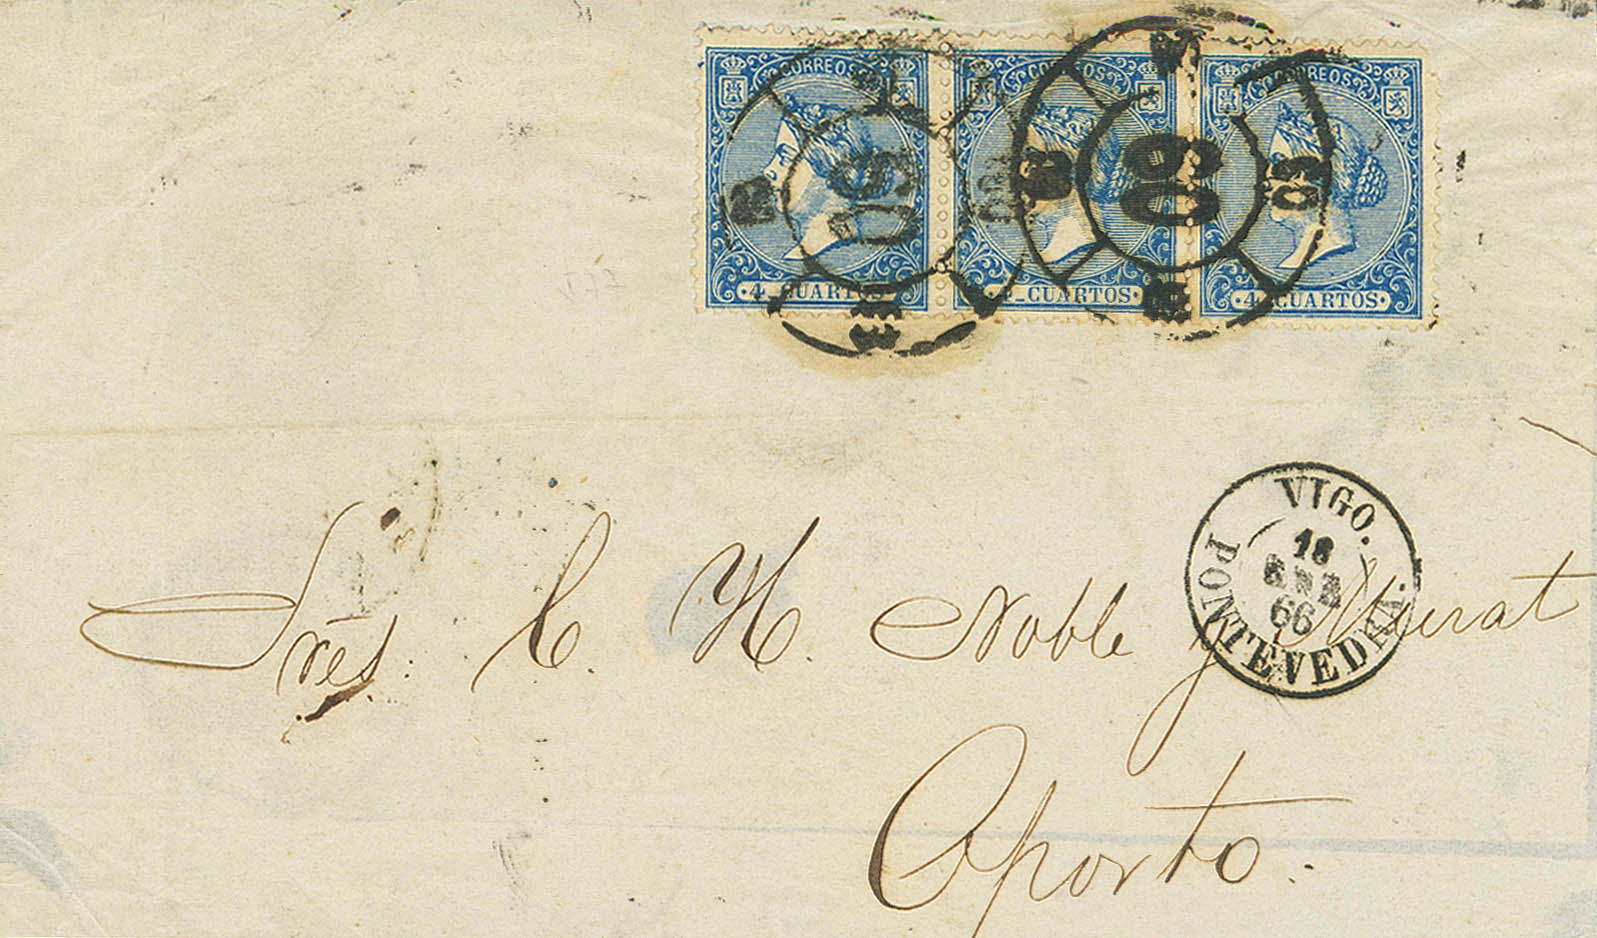 CORREOS CORREOS CORREOS
4 CUARTOS 4 CUARTOS 4 CUARTOS
60 60
VIGO.
18
ENE
66
PONTEVEDRA.
Srēs. C. H. Noble y Murat
Oporto.